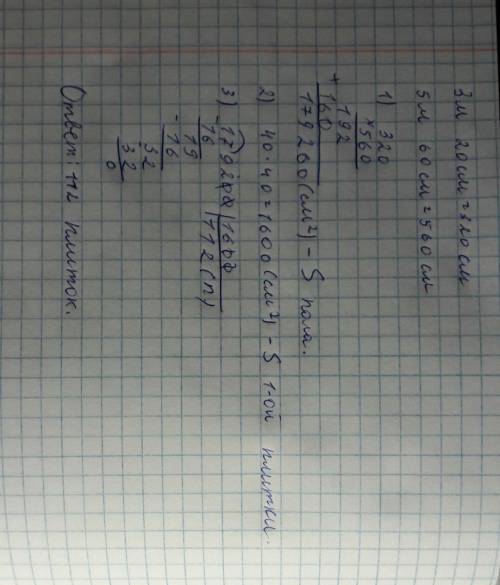 3м 20см=320см
5м 60см=560см
1) 320
×560
192
+160
179200(см²) – S пола.
2) 40·40=1600(см²) – S 1-ой плитки.
3) 179200|1600
-16 |112(п)
19
-16
32
32
0
Ответ: 112 плиток.